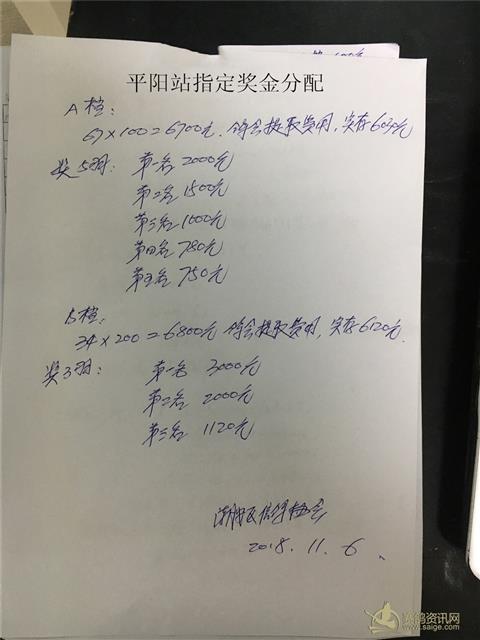 平阳站指定奖金分配
A档：
67×100=6700元.鸽会提取费用,实存6030元
奖5羽： 第一名 2000元
第二名 1500元
第三名 1000元
第四名 780元
第五名 750元
B档：
34×200=6800元 鸽会提取费用,实存6120元.
奖3羽： 第一名 3000元
第二名 2000元
第三名 1120元
信鸽协会
2018.11.6
赛鸽资讯网
www.saige.com